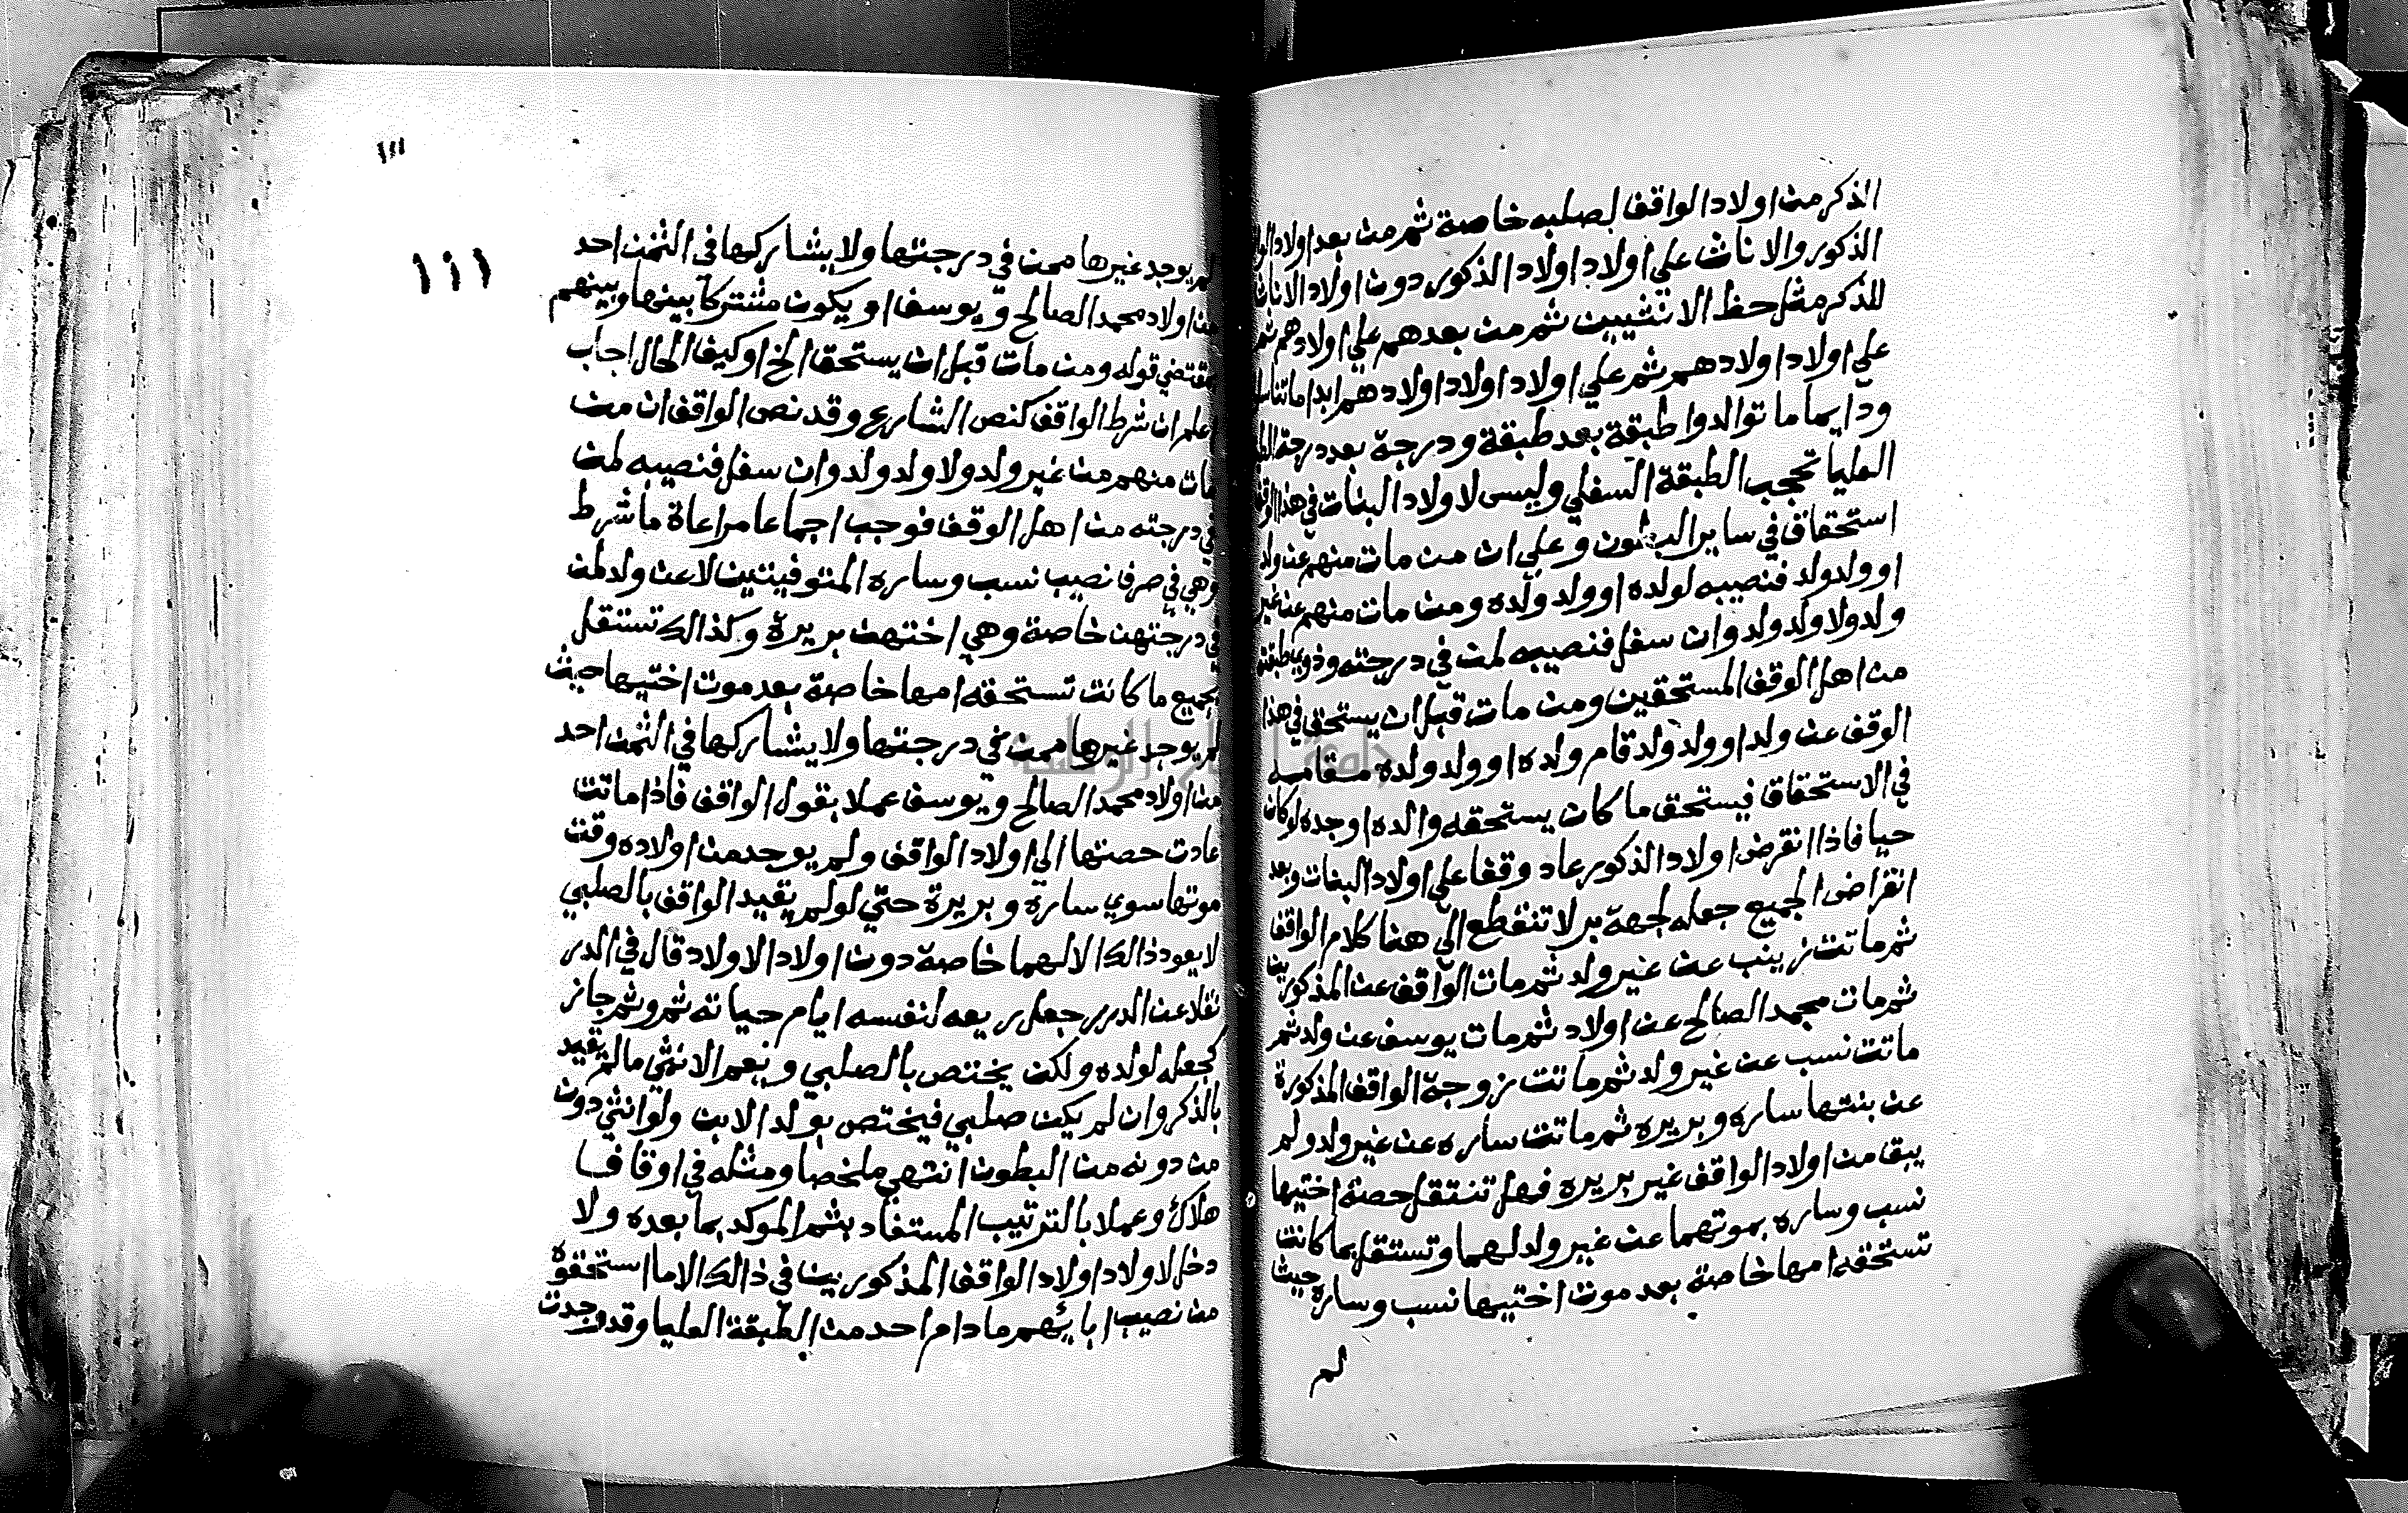 الذكر من اولاد الواقف لصلبه خاصة ثم من بعد اولاد
الذكور والاناث علي اولاد اولاد الذكور دون اولاد الاناث
للذكر مثل حظ الانثيين ثم من بعدهم علي اولادهم ثم
علي اولاد اولادهم ثم علي اولاد اولاد اولادهم ابدا ما تناسلوا
ودايما ما توالدوا طبقة بعد طبقة ودرجة بعد درجة
العليا تحجب الطبقة السفلي وليس لاولاد البنات في هذا الوقف
استحقاق في ساير البطون وعلي ان من مات منهم عن ولد
او ولد ولد فنصيبه لولده او ولد ولده ومن مات منهم عن غير
ولد ولا ولد ولد وان سفل فنصيبه لمن في درجته وذوي طبقته
من اهل الوقف المستحقين ومن مات قبل ان يستحق في هذا
الوقف عن ولد او ولد ولد قام ولده او ولد ولده مقامه
في الاستحقاق فيستحق ما كان يستحقه والده او جده لو كان
حيا فاذا انقرض اولاد الذكور عاد وقفا علي اولاد البنات وبعد
انقراض الجميع جعله لجهة بر لا تنقطع الي هنا كلام الواقف
ثم ماتت زينب عن غير ولد ثم مات الواقف عن المذكورين
ثم مات محمد الصالح عن اولاد ثم مات يوسف عن ولد ثم
ماتت نسب عن غير ولد ثم ماتت زوجة الواقف المذكورة
عن بنتها ساره وبريره ثم ماتت ساره عن غير ولد ولم
يبق من اولاد الواقف غير بريره فهل تنتقل حصة اختيها
نسب وساره بموتهما عن غير ولد لهما وتستقل بما كانت
تستحقه امها خاصة بعد موت اختيها نسب وساره حيث
لم
١١١
١١١
لم يوجد غيرها ممن في درجتها ولا يشاركها في الثمن احد
من اولاد محمد الصالح ويوسف او يكون مشتركا بينها وبينهم
بمقتضي قوله ومن مات قبل ان يستحق الخ او كيف الحال اجاب
اعلم ان شرط الواقف كنص الشارع وقد نص الواقف ان من
مات منهم من غير ولد ولا ولد ولد وان سفل فنصيبه لمن
في درجته من اهل الوقف فوجب اجماعا مراعاة ما شرط
وهي في صرف نصيب نسب وساره المتوفيتين لا عن ولد لمن
في درجتهن خاصة وهي اختهن بريرة وكذالك تستقل
بجميع ما كانت تستحقه امها خاصة بعد موت اختيها حيث
لم يوجد غيرها ممن في درجتها ولا يشاركها في الثمن احد
من اولاد محمد الصالح ويوسف عملا بقول الواقف فاذا ماتت
عادت حصتها الي اولاد الواقف ولم يوجد من اولاده وقت
موتها سوي سارة وبريرة حتي لو لم يقيد الواقف بالصلبي
لا يعود ذالك الا لهما خاصة دون اولاد الاولاد قال في الدر
نقلا عن الدرر جعل ريعه لنفسه ايام حياته ثم وثم جاز
كجعله لولده ولكن يختص بالصلبي ويعم الانثي ما لم يقيد
بالذكر وان لم يكن صلبي فيختص بولد الابن ولو انثي دون
من دونه من البطون انتهي ملخصا ومثله في اوقاف
هلال وعملا بالترتيب المستفاد بثم الموكد بما بعده ولا
دخل لاولاد اولاد الواقف المذكورين في ذالك الا ما استحقوه
من نصيب ابائهم ما دام احد من الطبقة العليا وقد وجدت